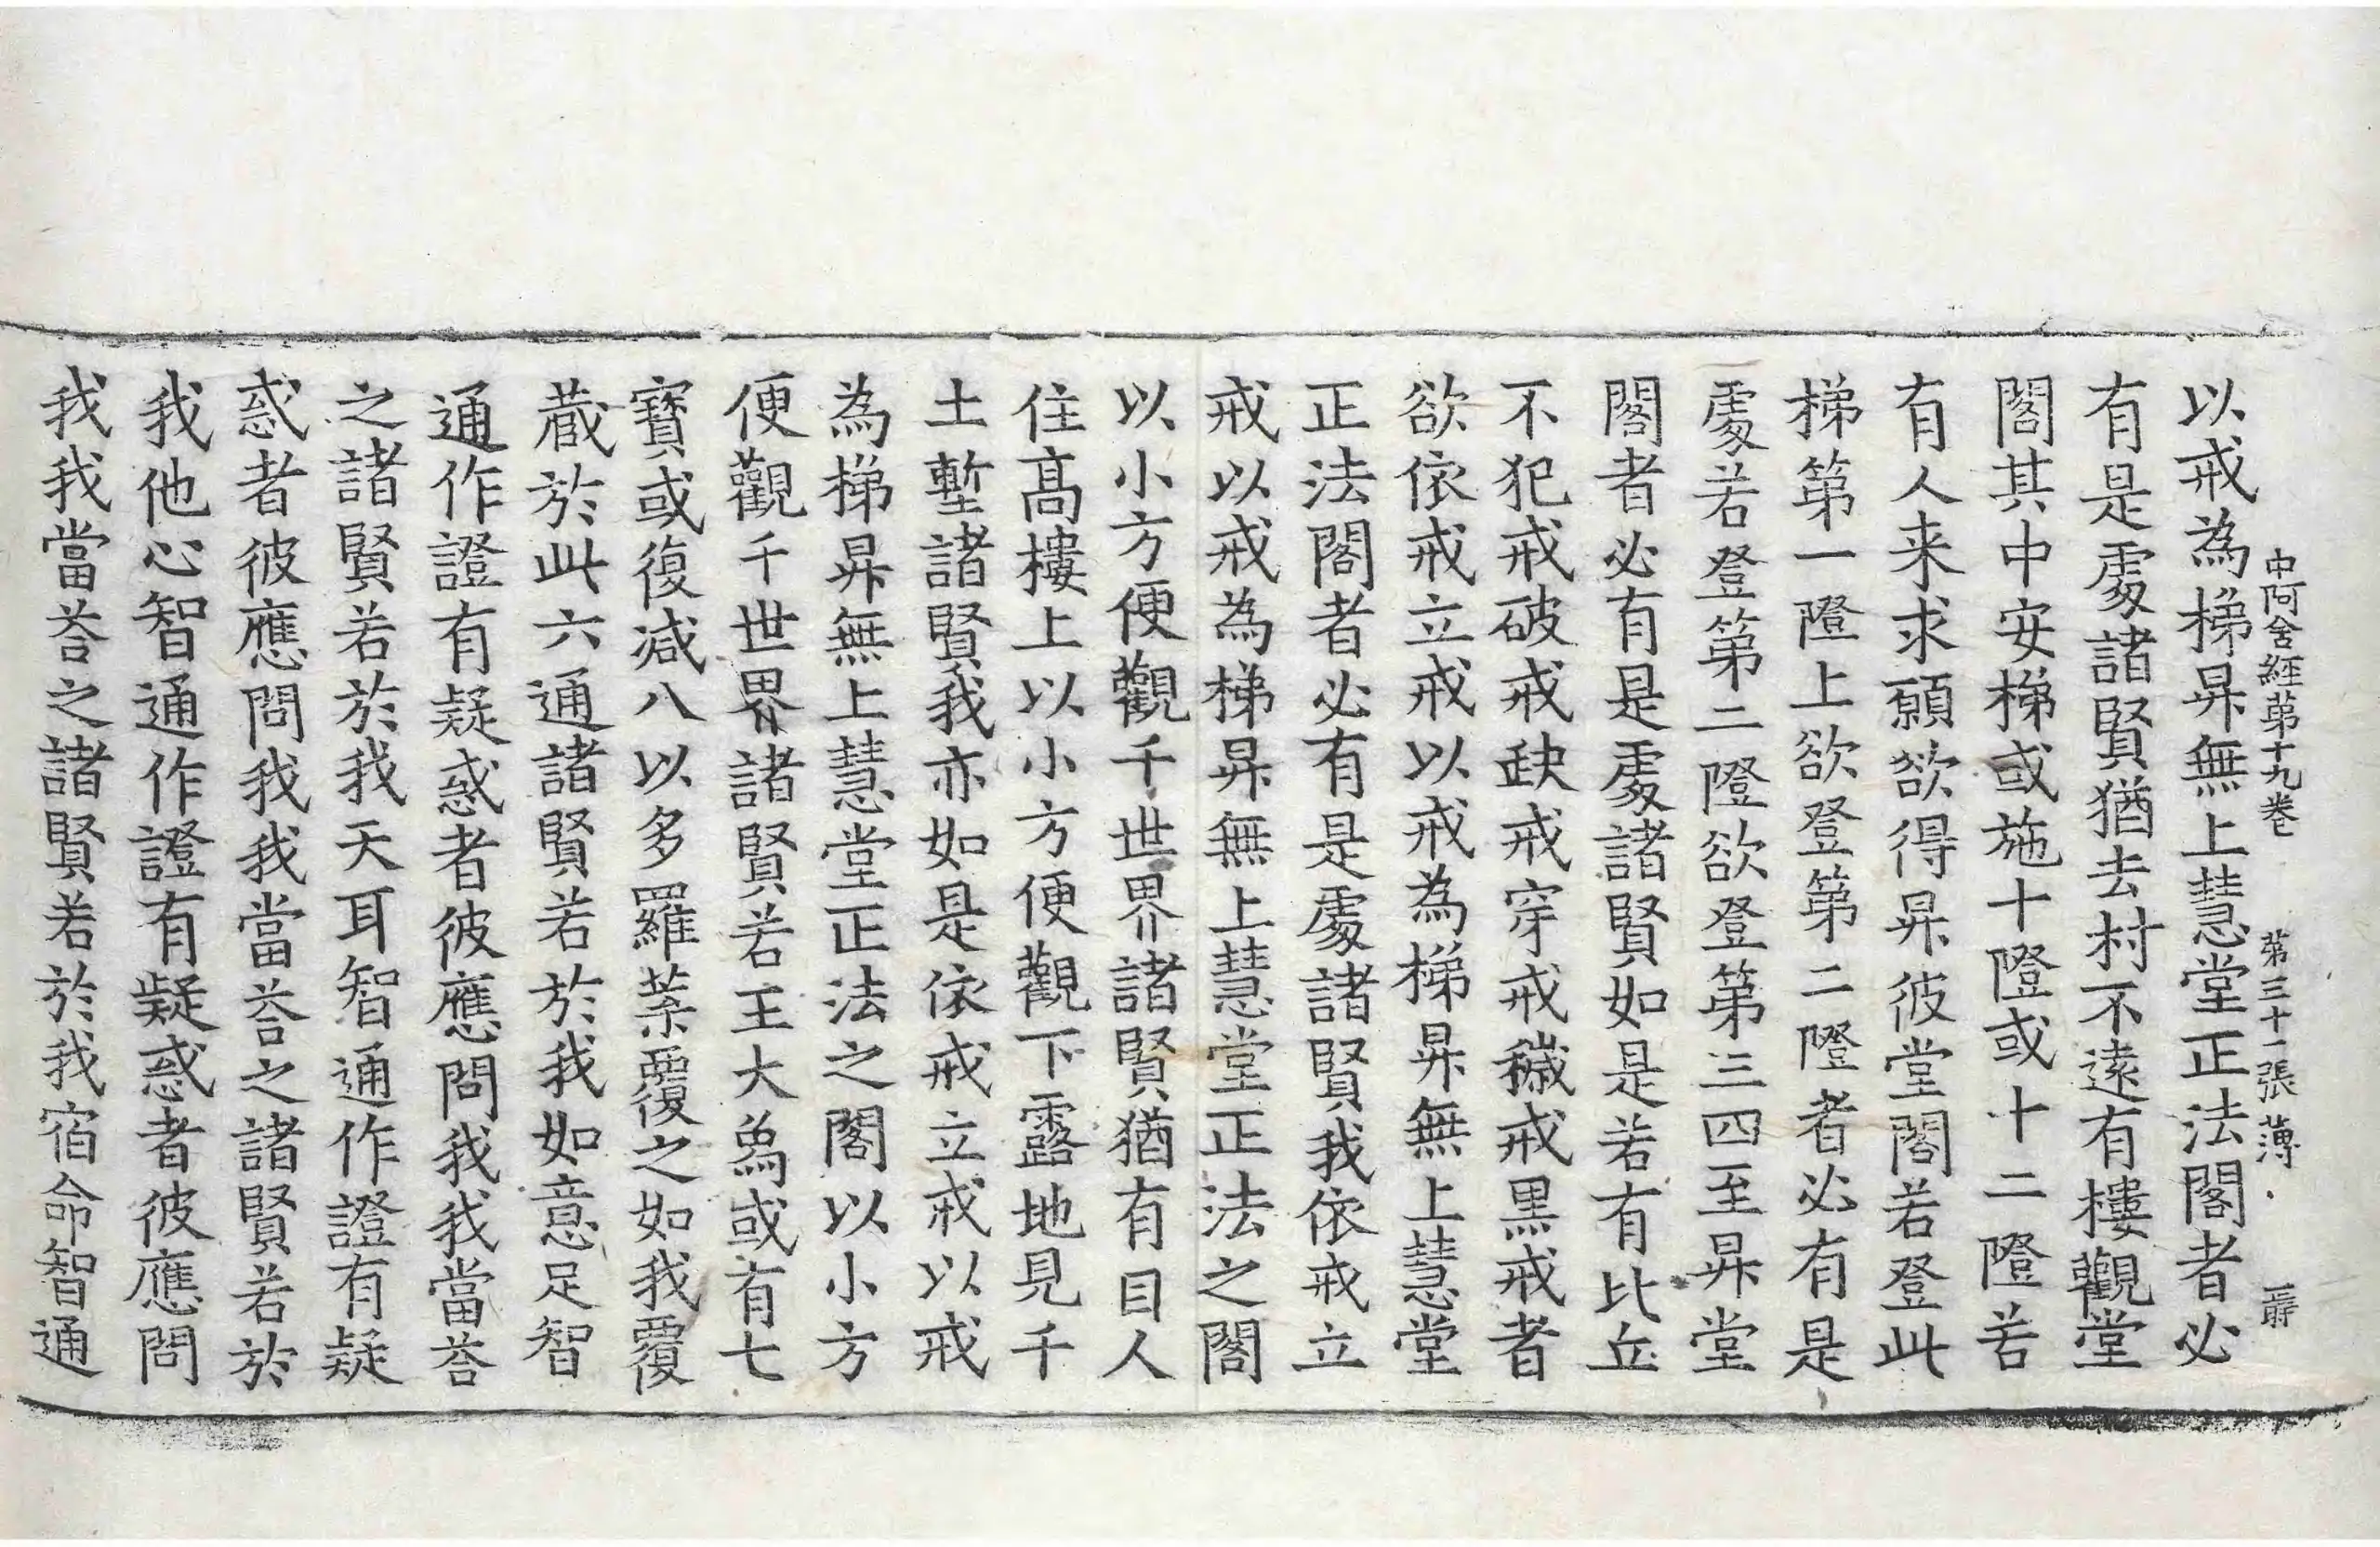 中阿含經第十九卷 第三十一張 薄
以戒為梯昇無上慧堂正法閣者必
有是處諸賢猶去村不遠有樓觀堂
閣其中安梯或施十隥或十二隥若
有人来求願欲得昇彼堂閣若登此
梯第一隥上欲登第二隥者必有是
處若登第二隥欲登第三四至昇堂
閣者必有是處諸賢如是若有比丘
不犯戒破戒缺戒穿戒穢戒黑戒者
欲依戒立戒以戒為梯昇無上慧堂
正法閣者必有是處諸賢我依戒立
戒以戒為梯昇無上慧堂正法之閣
以小方便觀千世界諸賢猶有目人
住髙樓上以小方便觀下露地見千
土墼諸賢我亦如是依戒立戒以戒
為梯昇無上慧堂正法之閣以小方
便觀千世界諸賢若王大為或有七
寶或復减八以多羅葉覆之如我覆
蔵於此六通諸賢若於我如意足智
通作證有疑惑者彼應問我我當荅
之諸賢若於我天耳智通作證有疑
惑者彼應問我我當荅之諸賢若於
我他心智通作證有疑惑者彼應問
我我當荅之諸賢若於我宿命智通